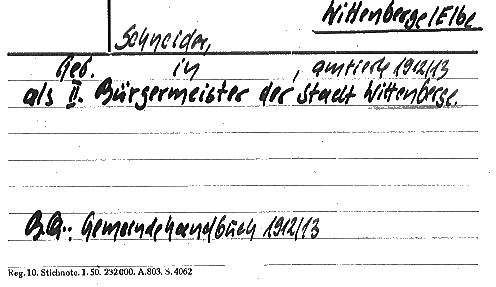 Wittenberge/Elbe
Schneider,
Geb. in , amtierte 1912/13
als II. Bürgermeister der Stadt Wittenberge.
B.Q.: Gemeindehandbuch 1912/13
Reg. 10. Stichnote. I. 50. 232000. A. 803. S. 4062